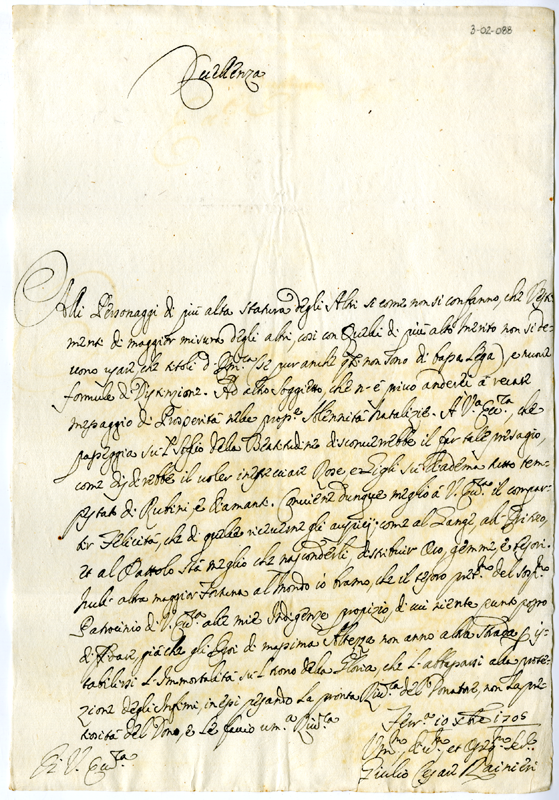 3-02-088
Eccellenza
Alli Personaggi di più alta statura degli Altri si come non si confanno, che Vesti-
menti di maggior misura degli altri, così con Quelli di più alto Merito non si de-
vono usar che titoli d' (se pur anche non sono di bassa Lega) e nuove
formule di Distinzione. Ad alto soggetto, che
messaggio di Prosperità nelle Solennità Natalizie. A V.ra Ecc.za, che
passeggia sul Soglio della Beatitudine disconverrebbe il far tale presagio,
come disdirebbe il voler intrecciar Rose e Gigli sul Diadema tutto tem-
pestato di Rubini, e diamanti. Conviene dunque meglio à V. Ecc.za il compar-
tir Felicità, che di quelle riceverne gli auspicij: come al Gange, al
et al Pattolo stà meglio che nasconderli, distribuir Oro, gemme, e tesori.
altra maggior Fortuna al Mondo io bramo, che il tesoro del
Patrocinio di V. Ecc.za alle mie Indigenze propizio, di cui niente punto
già che gli Eroi di massima Altezza non anno altra Strada p
tabilirsi l'Immortalità sul trono della Gloria, che l'abbassarsi alla prote-
zione degli Infimi, in essi pesando la pronta del Donator, non la pre-
tiosità del Dono, e le faccio um.a Riv.za
Di V. Ecc.za
Ferr.a 10 Xbre 1705
Um.o et
Giulio Cesare Rainieri